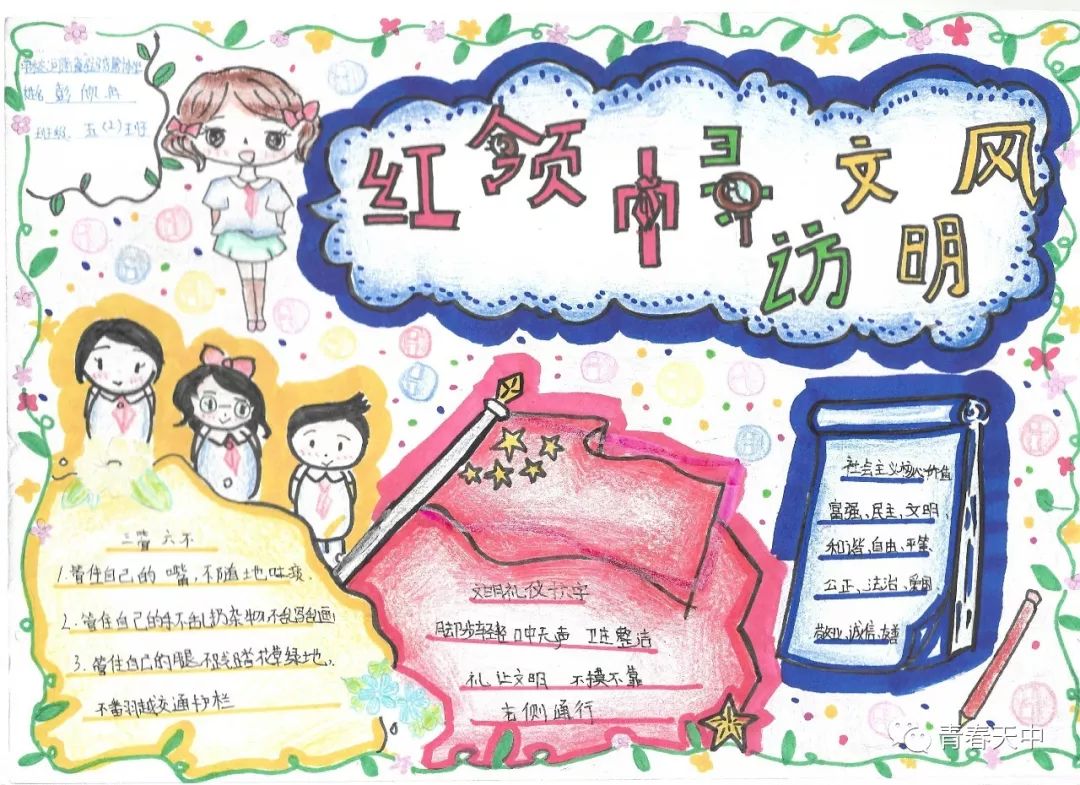 姓名
班级:五(2)班
红领巾寻访文明风
三管六不
1.管住自己的嘴,不随地吐痰.
2.管住自己的手不乱扔杂物不乱写乱画
3.管住自己的腿不践踏花草绿地、
不翻越交通护栏
文明礼仪 字
脚步轻轻 口中无声 卫生整洁
礼让文明 不摸不靠
右侧通行
社会主义核心价值
富强、民主、文明
和谐、自由、平等
公正、法治、爱国
敬业、诚信、友善
青春天中